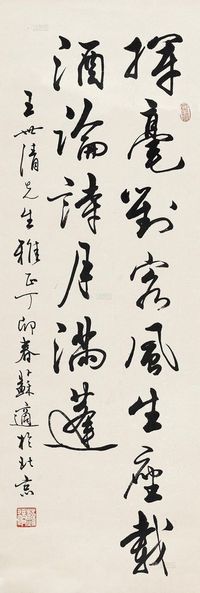 揮毫對客風生座載
酒論詩月滿篷
王世清先生雅正丁卯春蘇適於北京